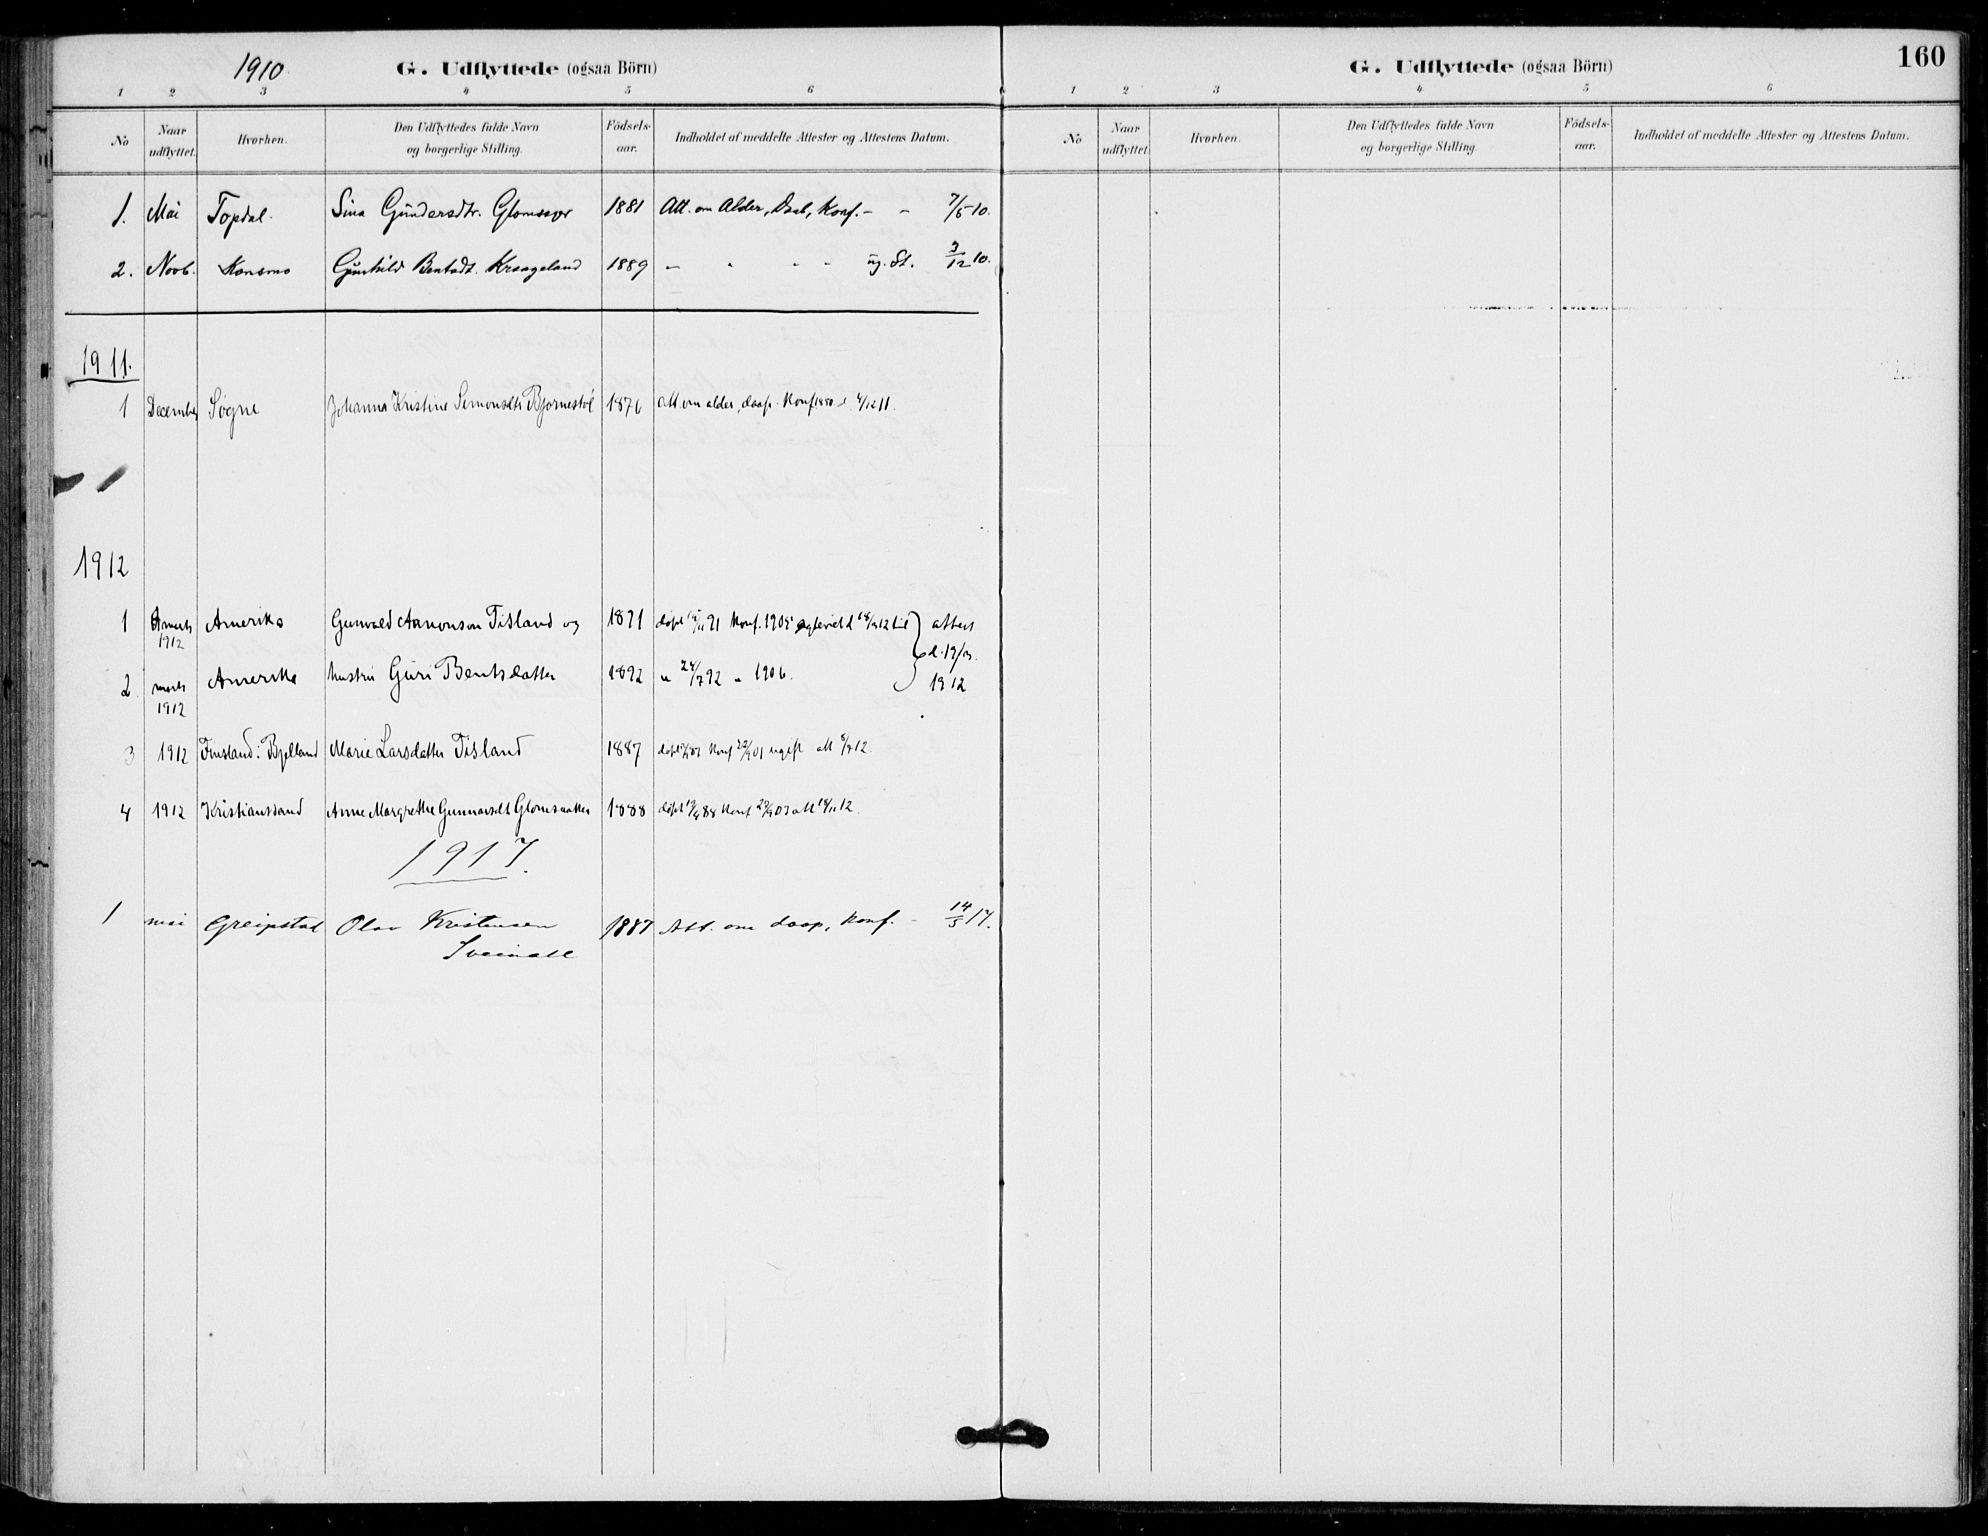 1910. G. Udflyttede (ogsaa Börn)
1 2 3 4 5 6
No Naar udflyttet. Hvorhen. Den Udflyttedes fulde Navn og borgerlige Stilling. Födsels-aar. Indholdet af meddelte Attester og Attestens Datum.
1. Mai Topdal. Sina Gundersdtr. 1881 Att. om Alder, Daab, Konf. - - 7/5 10.
2. Novb. Konsmo Gunhild Bentsdt. Kraageland 1889 - " - - ug. St. 3/12 10.
1911.
1 December Søgne Johanna Kristine Simonsdtr Bjørnestøl 1876 att. om alder, daap. Konf 4/12 11.
1912
1 marts 1912 Amerika Gunvald Aanonsen Tisland og 1891 døpt 91 Konf. 1905 til attest
d. 19/3.
2 marts 1912 Amerika hustru Guri Bentsdatter 1892 " 24/7 92 " 1906. 1912
3 1912 Finsland: Bjelland Marie Larsdatter Tisland 1887 døpt Konf 01 ugift att 12
4 1912 Kristianssand Anne Margrethe Gunnarsdt 1888 døpt 88 Konf 03 att 12.
1917.
1 mai Greipstad Olav Kristensen 1887 Att. om daap, konf. - 14/5 17.
Sveindal
G. Udflyttede (ogsaa Börn) 160
1 2 3 4 5 6
No Naar udflyttet. Hvorhen. Den Udflyttedes fulde Navn og borgerlige Stilling. Födsels-aar. Indholdet af meddelte Attester og Attestens Datum.